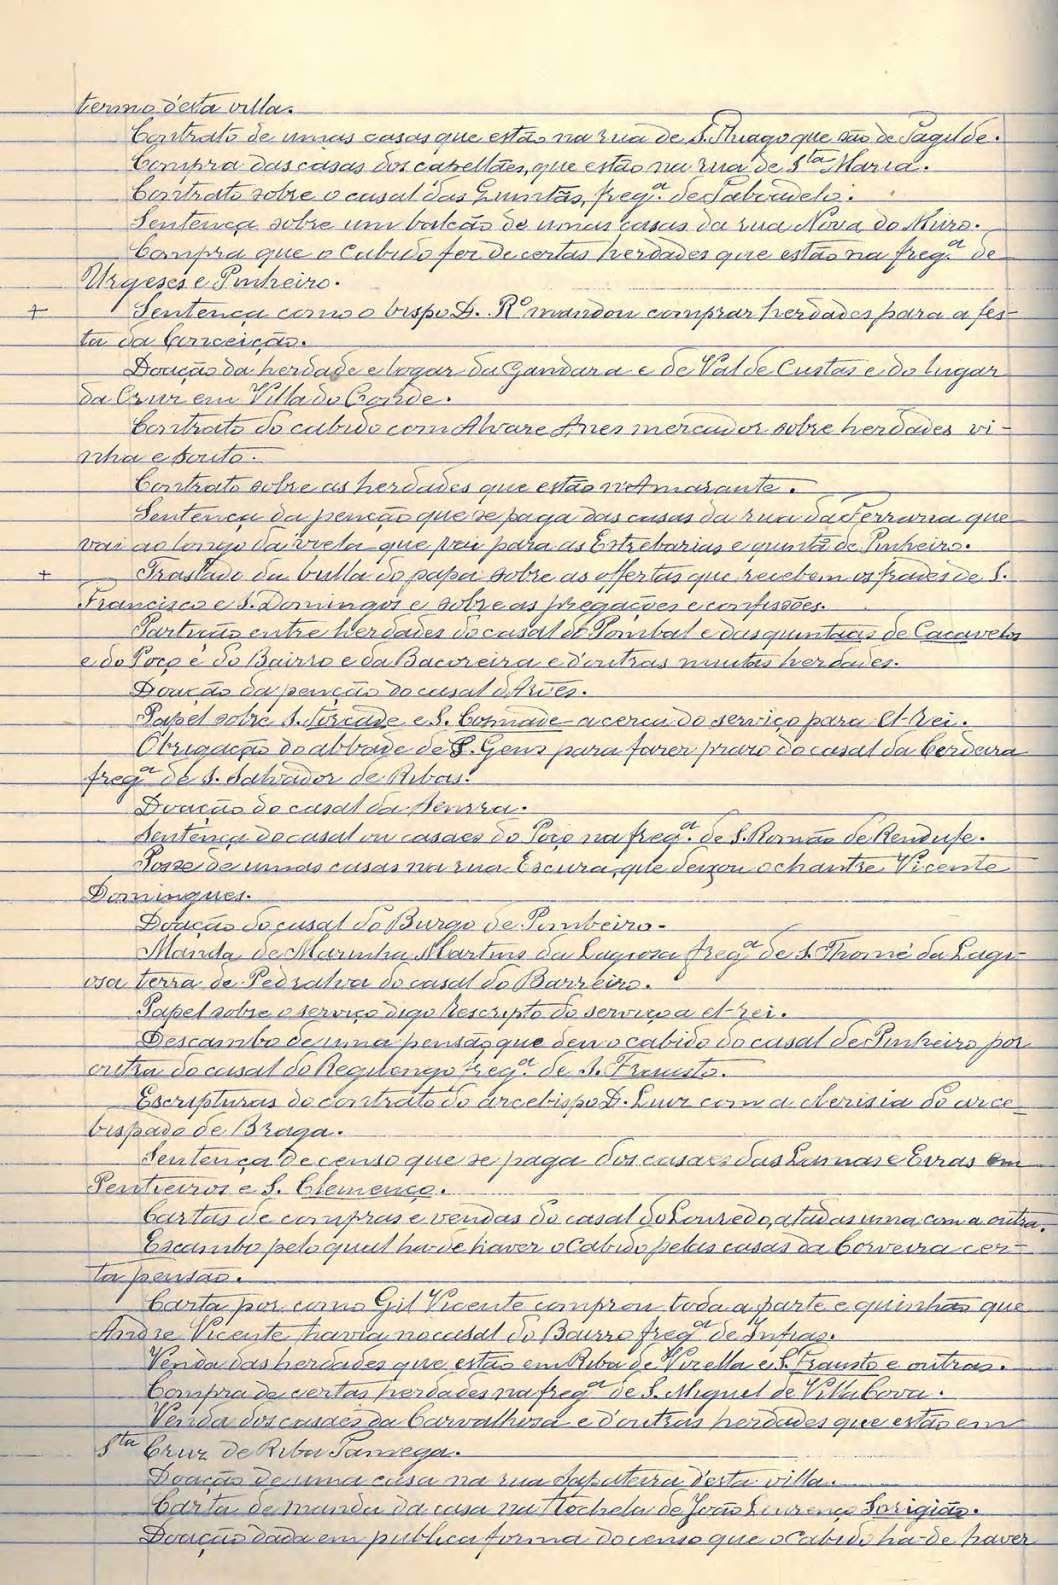 termo d'esta villa.
Contrato de umas casas que estão na rua de S. Thiago que são de Tagilde.
Compra das casas dos capellães, que estão na rua de Sta Maria.
Contrato sobre o casal das Quintãs, freg.a de Taboadelo.
Sentença sobre um balcão de umas casas da rua Nova do Muro.
Compra que o Cabido fez de certas herdades que estão na freg.a de
Urgeses e Pinheiro.
+ Sentença como o bispo D. Ro mandou comprar herdades para a fes-
ta da Conceição.
Doação da herdade e logar da Gandara e de Val de Custas e do lugar
da Cruz em Villa do Conde.
Contrato do cabido com Alvare Anes mercador sobre herdades vi-
nha e souto.
Contrato sobre as herdades que estão n'Amarante.
Sentença da penção que se paga das casas da rua da Ferraria que
vai ao longo da viela que vai para as Estrebarias e quintã de Pinheiro.
+ Traslado da bulla do papa sobre as offertas que recebem os frades de S.
Francisco e S. Domingos e sobre as pregações e confissões.
Partição entre herdades do casal do Pombal e das quintãas de Cacavelos
e do Poço e do Bairro e da Bacoreira e d'outras muitas herdades.
Doação da penção do casal d'Arões.
Papel sobre S. Torcade e S. Cosmade acerca do serviço para el-rei.
Obrigação do abbade de S. Gens para fazer prazo do casal da Cerdeira
freg.a de S. Salvador de Ribas.
Doação do casal da Senrra.
Sentença do casal ou casaes do Poço na freg.a de S. Romão de Rendufe.
Posse de umas casas na rua Escura, que deixou o chantre Vicente
Domingues.
Doação do casal do Burgo de Pombeiro.
Manda de Marinha Martins da Lagiosa freg.a de S. Thomé da Lagi-
osa terra de Pedralva do casal do Barreiro.
Papel sobre o serviço digo Rescripto do serviço a el-rei.
Descambo de uma pensão que deu o cabido do casal de Pinheiro por
outra do casal do Regulengo freg.a de S. Frausto.
Escripturas do contrato do arcebispo D. Luiz com a clerisia do arce-
bispado de Braga.
Sentença de censo que se paga dos casaes das Lamas e Eiras em
Pentieiros e S. Clemenço.
Cartas de compras e vendas do casal do Louredo, atadas uma com a outra.
Escambo pelo qual ha-de haver o Cabido pelas casas da Corveira cer-
ta pensão.
Carta por como Gil Vicente comprou toda a parte e quinhão que
André Vicente havia no casal do Bairro freg.a de Infias.
Venda das herdades que estão em Riba de Virella e S. Frausto e outras.
Compra de certas herdades na freg.a de S. Miguel de Villa Cova.
Venda dos casaes da Carvalhosa e d'outras herdades que estão em
Sta Cruz de Riba Tamega.
Doação de uma casa na rua Sapateira d'esta villa.
Carta de manda da casa na Rochela de João Lourenço Sorigião.
Doação dada em publica forma do censo que o Cabido ha-de haver